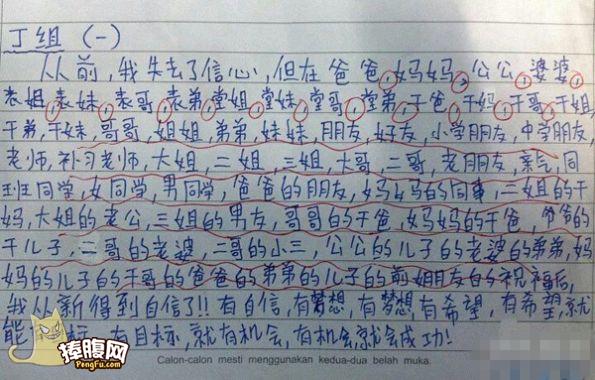 丁组 (一)
从前,我失去了信心,但在爸爸,妈妈,公公,婆婆
表姐,表妹,表哥,表弟,堂姐,堂妹,堂哥,堂弟,干爸,干妈,干哥,干姐,
干弟,干妹,哥哥,姐姐,弟弟,妹妹,朋友,好友,小学朋友,中学朋友,
老师,补习老师,大姐,二姐,三姐,大哥,二哥,老朋友,亲戚,同
班同学,女同学,男同学,爸爸的朋友,妈妈的同事,二姐的干
妈,大姐的老公,三姐的男友,哥哥的干爸,妈妈的干爸,爷爷的
干儿子,二哥的老婆,二哥的小三,公公的儿子的老婆的弟弟,妈
妈的儿子的干哥的爸爸的弟弟的儿子的前姐朋友的祝福后,
我从新得到自信了!!有自信,有梦想,有梦想,有希望,有希望,就
能 标,有目标,就有机会,有机会就会成功!
捧腹网
PengFu.com
Calon-calon mesti menggunakan kedua-dua belah muka.